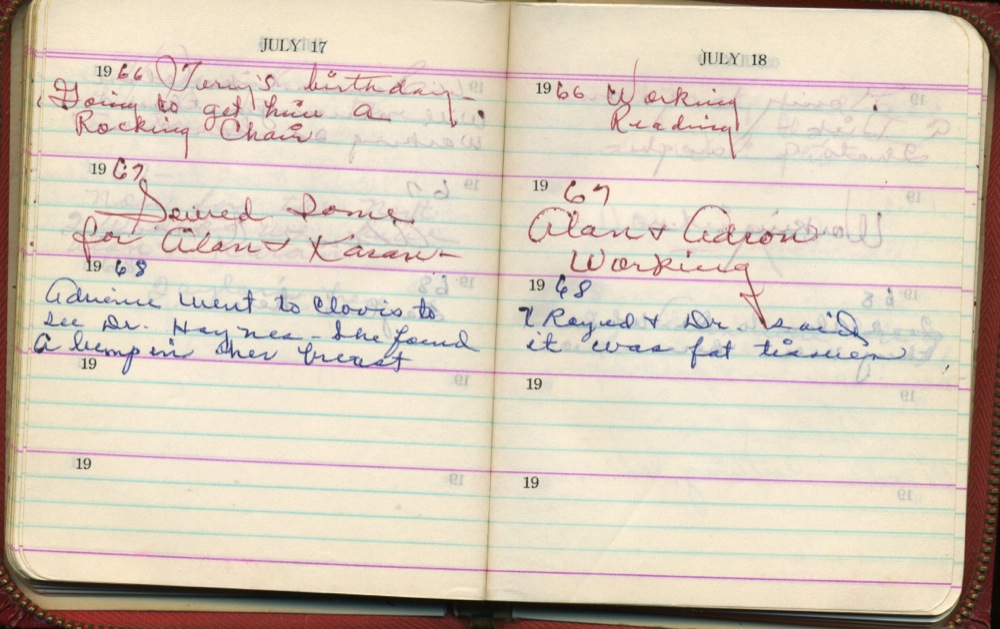 JULY 17
1966 Terry's birthday -
Going to get him a
Rocking Chair
1967
Sewed some
for Alan & Karan -
1968
Adriene went to Clovis to
see Dr. Haynes - She found
a lump in her breast
19
19
JULY 18
1966 Working
Reading
1967
Alan & Adron
Working
1968
X Rayed & Dr. said
it was fat tissue
19
19